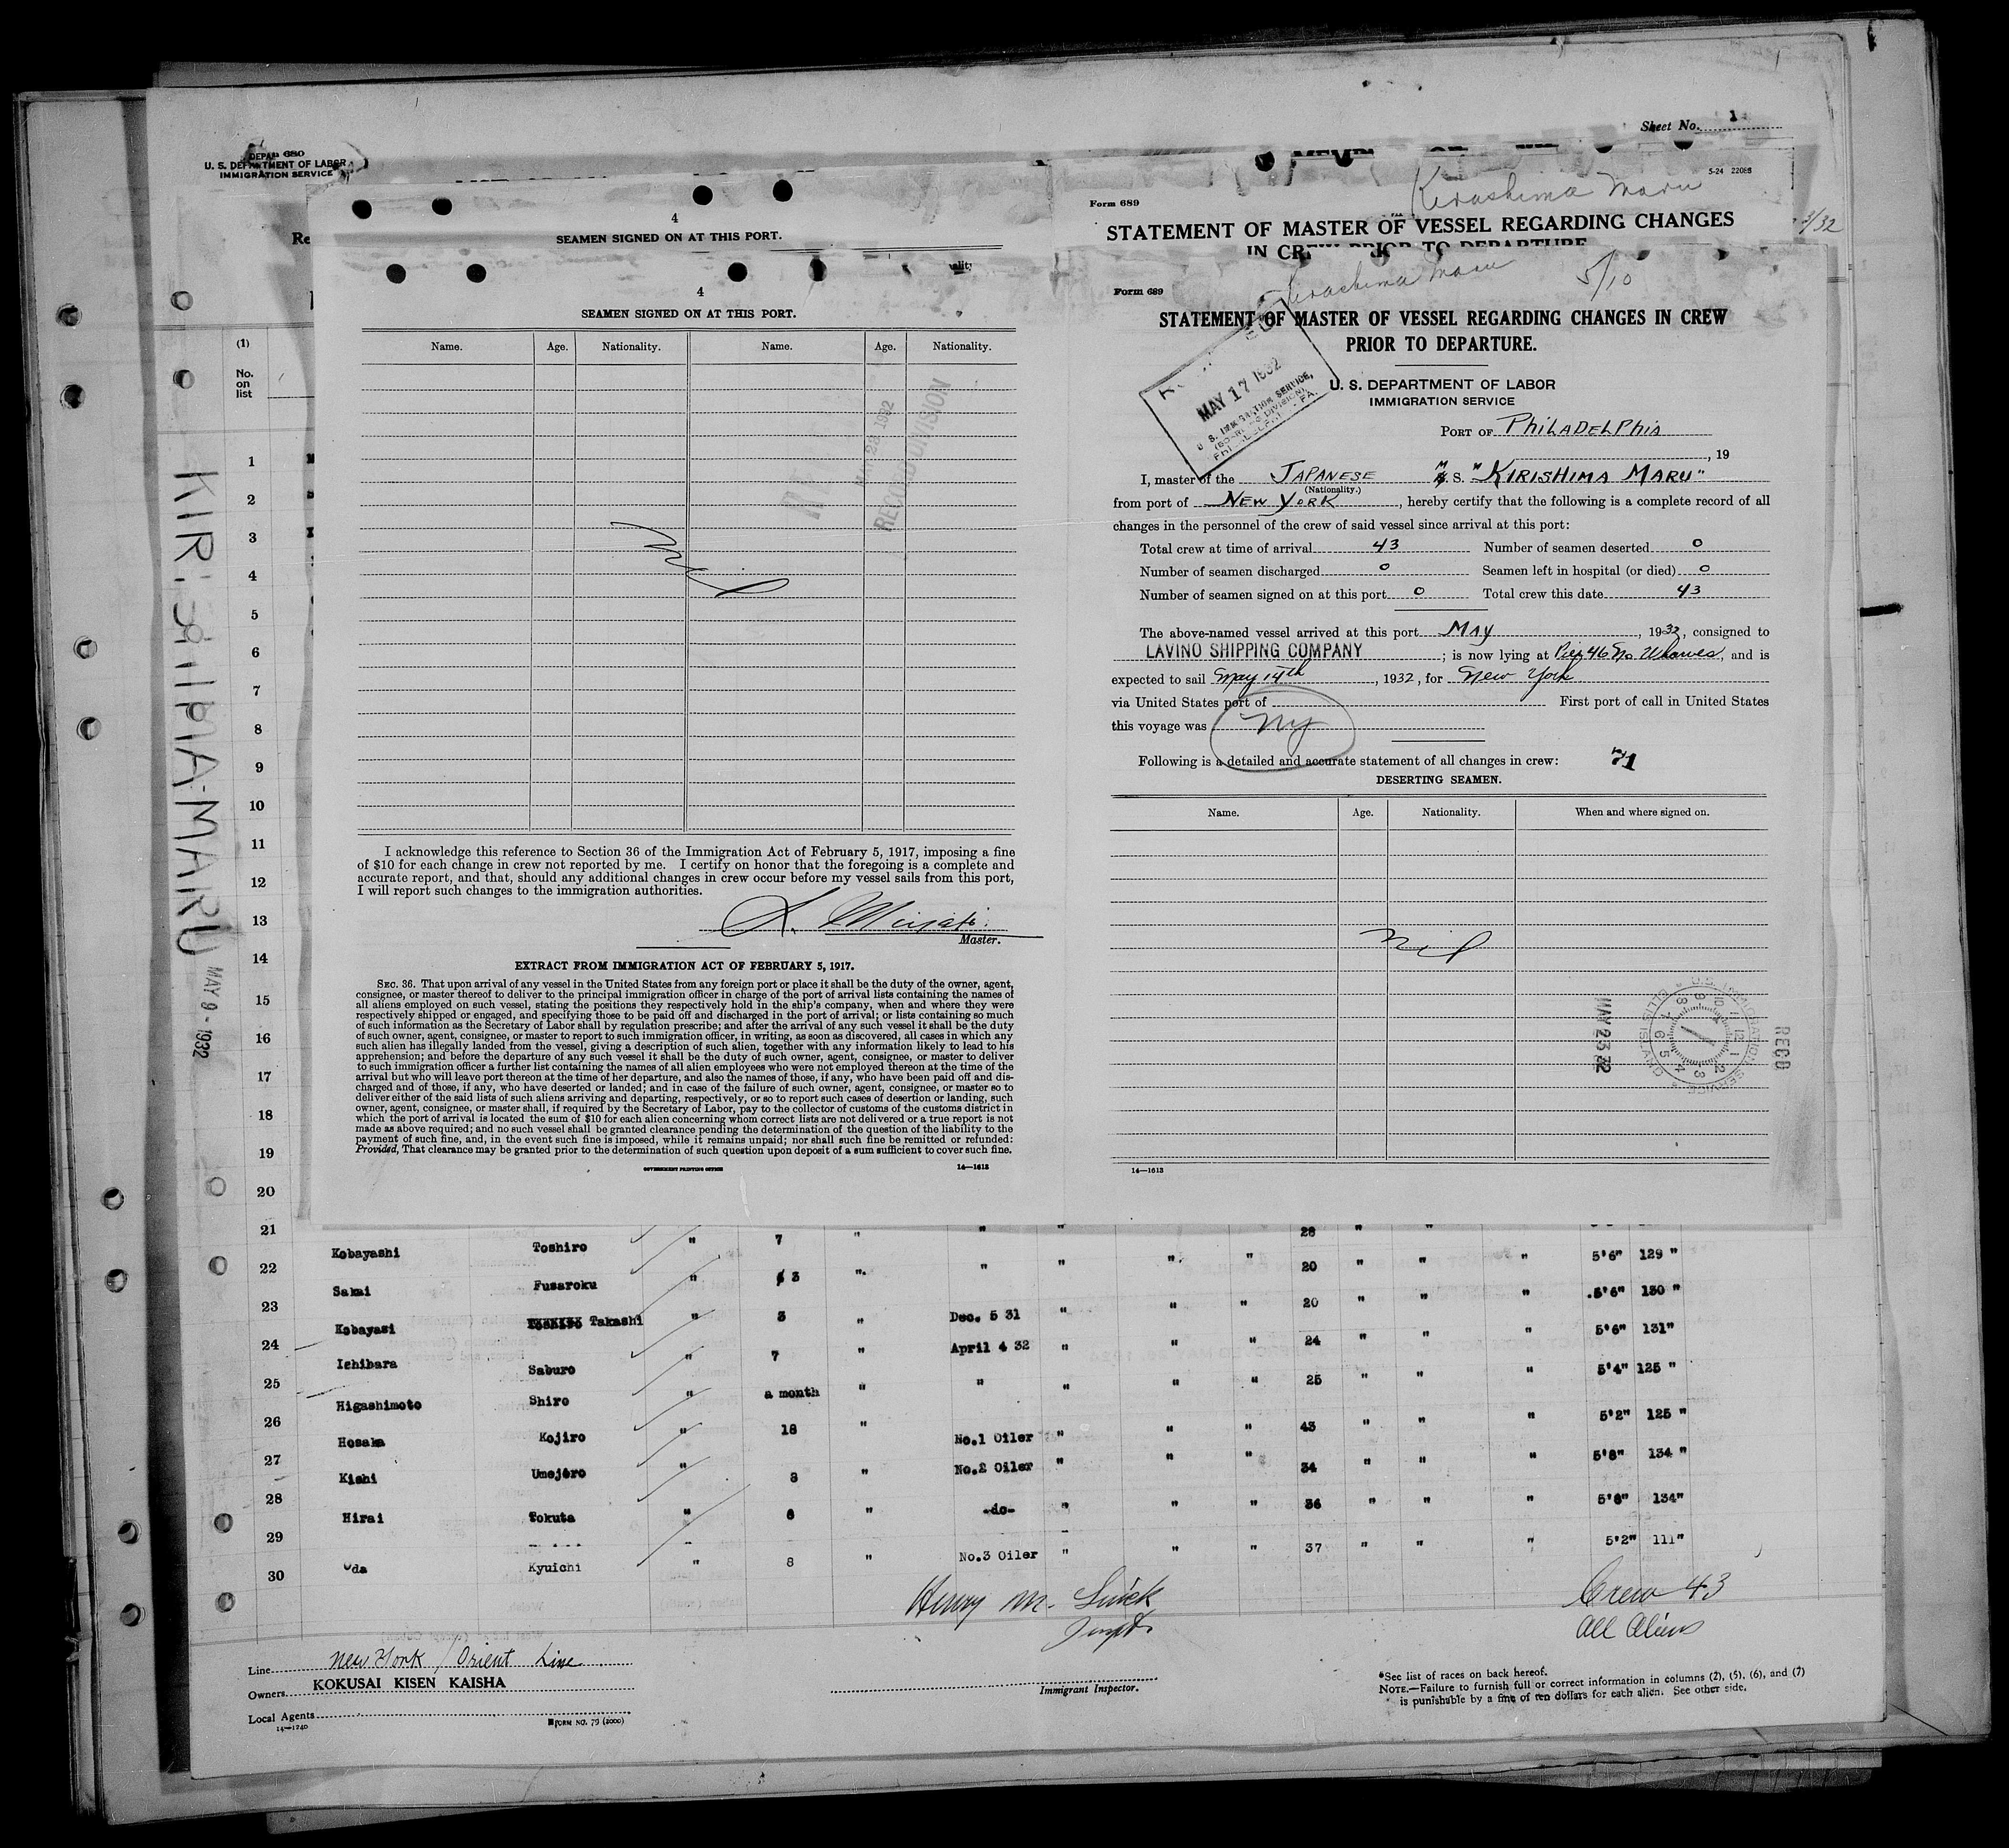 Sheet No. 1
680
U. S. DEPARTMENT OF LABOR
IMMIGRATION SERVICE
5-24 22088
Form 689
Kirashima Maru
STATEMENT OF MASTER OF VESSEL REGARDING CHANGES
IN CREW PRIOR TO DEPARTURE
4
SEAMEN SIGNED ON AT THIS PORT.
4
SEAMEN SIGNED ON AT THIS PORT.
Name. Age. Nationality. Name. Age. Nationality.
RECORD DIVISION
Nil
I acknowledge this reference to Section 36 of the Immigration Act of February 5, 1917, imposing a fine
of $10 for each change in crew not reported by me. I certify on honor that the foregoing is a complete and
accurate report, and that, should any additional changes in crew occur before my vessel sails from this port,
I will report such changes to the immigration authorities.
Master.
EXTRACT FROM IMMIGRATION ACT OF FEBRUARY 5, 1917.
SEC. 36. That upon arrival of any vessel in the United States from any foreign port or place it shall be the duty of the owner, agent,
consignee, or master thereof to deliver to the principal immigration officer in charge of the port of arrival lists containing the names of
all aliens employed on such vessel, stating the positions they respectively hold in the ship's company, when and where they were
respectively shipped or engaged, and specifying those to be paid off and discharged in the port of arrival; or lists containing so much
of such information as the Secretary of Labor shall by regulation prescribe; and after the arrival of any such vessel it shall be the duty
of such owner, agent, consignee, or master to report to such immigration officer, in writing, as soon as discovered, all cases in which any
such alien has illegally landed from the vessel, giving a description of such alien, together with any information likely to lead to his
apprehension; and before the departure of any such vessel it shall be the duty of such owner, agent, consignee, or master to deliver
to such immigration officer a further list containing the names of all alien employees who were not employed thereon at the time of the
arrival but who will leave port thereon at the time of her departure, and also the names of those, if any, who have been paid off and dis-
charged and of those, if any, who have deserted or landed; and in case of the failure of such owner, agent, consignee, or master so to
deliver either of the said lists of such aliens arriving and departing, respectively, or so to report such cases of desertion or landing, such
owner, agent, consignee, or master shall, if required by the Secretary of Labor, pay to the collector of customs of the customs district in
which the port of arrival is located the sum of $10 for each alien concerning whom correct lists are not delivered or a true report is not
made as above required; and no such vessel shall be granted clearance pending the determination of the question of the liability to the
payment of such fine, and, in the event such fine is imposed, while it remains unpaid; nor shall such fine be remitted or refunded:
Provided, That clearance may be granted prior to the determination of such question upon deposit of a sum sufficient to cover such fine.
GOVERNMENT PRINTING OFFICE 14—1613
Form 689
Kirashima Maru 5/10
STATEMENT OF MASTER OF VESSEL REGARDING CHANGES IN CREW
PRIOR TO DEPARTURE.
U. S. DEPARTMENT OF LABOR
IMMIGRATION SERVICE
MAY 17 1932
U. S. IMMIGRATION SERVICE,
PORT OF PHILADELPHIA
, 19
I, master of the JAPANESE M. S. "KIRISHIMA MARU"
(Nationality.)
from port of NEW YORK, hereby certify that the following is a complete record of all
changes in the personnel of the crew of said vessel since arrival at this port:
Total crew at time of arrival 43 Number of seamen deserted 0
Number of seamen discharged 0 Seamen left in hospital (or died) 0
Number of seamen signed on at this port 0 Total crew this date 43
The above-named vessel arrived at this port May, 1932, consigned to
LAVINO SHIPPING COMPANY; is now lying at Pier 46 No. Wharves, and is
expected to sail May 14th, 1932, for New York
via United States port of First port of call in United States
this voyage was NY
Following is a detailed and accurate statement of all changes in crew: 71
DESERTING SEAMEN.
Name. Age. Nationality. When and where signed on.
Nil
RECD
U.S. IMMIGRATION SERVICE ELLIS ISLAND
14—1613
(1)
No.
on
list
KIRISHIMA-MARU
MAY 9 - 1932
1
2
3
4
5
6
7
8
9
10
11
12
13
14
15
16
17
18
19
20
21 " " 28 " "
22 Kobayashi Toshiro " 7 " " " " " 20 " " " 5'6" 129 "
23 Sakai Fusaroku " 3 " " " " 20 " " " 5'6" 130 "
24 Kobayasi Takashi " 3 " Dec. 5 31 " " " 24 " " " 5'6" 131"
25 Ichihara Saburo " 7 " April 4 32 " " " 25 " " " 5'4" 125 "
26 Higashimoto Shiro " a month " " " " " 43 " " " 5'2" 125 "
27 Hosaka Kojiro " 18 " No.1 Oiler " " " 34 " " " 5'8" 134 "
28 Kishi Umejero " 8 " No.2 Oiler " " " 36 " " " 5'8" 134"
29 Hirai Tokuta " 8 " -do- " " " 37 " " " 5'2" 111"
30 Kyuichi " 8 " No.3 Oiler "
Crew 43
All Aliens
Line New York / Orient Line
Owners KOKUSAI KISEN KAISHA
Local Agents
14—1240 FORM NO. 79 (2000)
Immigrant Inspector.
*See list of races on back hereof.
NOTE.—Failure to furnish full or correct information in columns (2), (5), (6), and (7)
is punishable by a fine of ten dollars for each alien. See other side.